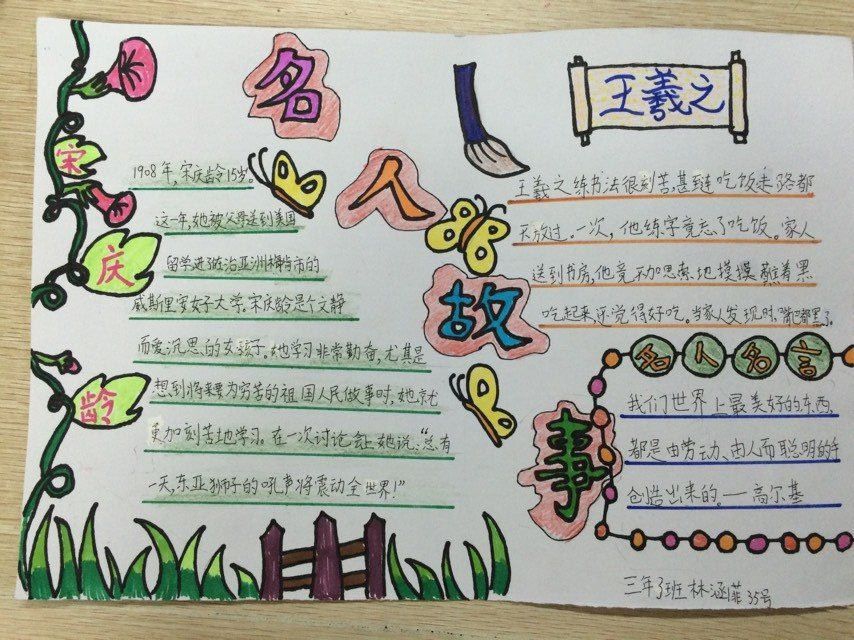 名人故事
宋庆龄
1908年,宋庆龄15岁。
这一年,她被父母送到美国
留学进佐治亚洲梅肯市的
威斯里安女子大学。宋庆龄是个文静
而爱沉思的女孩子。她学习非常勤奋,尤其是
想到将来要为穷苦的祖国人民做事时,她就
更加刻苦地学习。在一次讨论会上她说:“总有
一天,东亚狮子的吼声将震动全世界!”
王羲之
王羲之练书法很刻苦,甚至连吃饭走路都
不放过。一次,他练字竟忘了吃饭。家人
送到书房,他竟不加思索地馍馍蘸着黑
吃起来,还觉得好吃。当家人发现时,嘴巴都黑了。
名人名言
我们世界上最美好的东西,
都是由劳动、由人而聪明的手
创造出来的。——高尔基
三年3班 林涵菲 35号